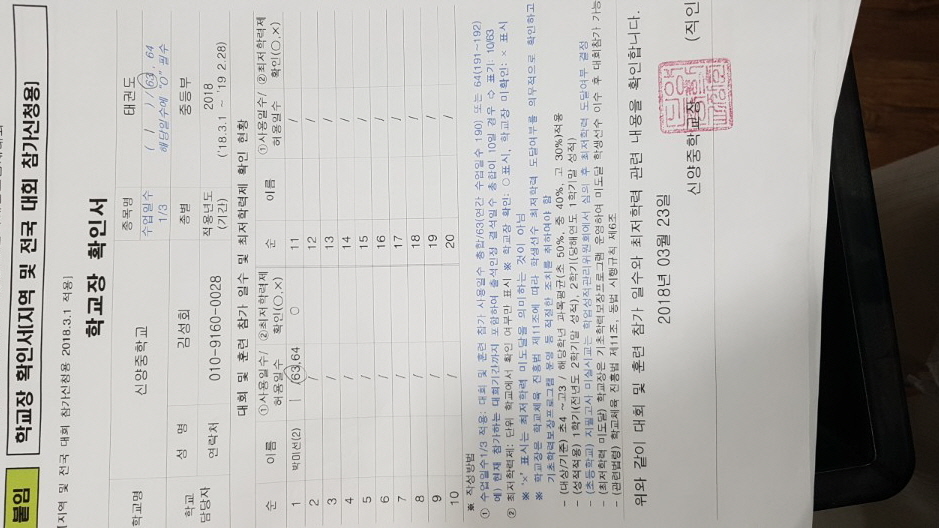 붙임 학교장 확인서(지역 및 전국 대회 참가신청용)
[지역 및 전국 대회 참가신청용 2018.3.1 적용]
학교장 확인서
학교명 신양중학교 종목명 태권도
수업일수 1/3 ( ) / 63, 64
해당일수에 "O" 필수
학교 담당자 성 명 김성회 종별 중등부
연락처 010-9160-0028 적용년도 (기간) 2018 ('18.3.1 ~ '19 2.28)
대회 및 훈련 참가 일수 및 최저학력제 확인 현황
순 이름 ①사용일수/허용일수 ②최저학력제 확인(○,×) 순 이름 ①사용일수/허용일수 ②최저학력제 확인(○,×)
1 박미선(2) /63,64 ○ 11 /
2 / 12 /
3 / 13 /
4 / 14 /
5 / 15 /
6 / 16 /
7 / 17 /
8 / 18 /
9 / 19 /
10 / 20 /
※ 작성방법
① 수업일수1/3 적용: 대회 및 훈련 참가 사용일수 총합/63(연간 수업일수 190) 또는 64(191~192)
예) 현재 참가하는 대회기간까지 포함하여 출석인정 결석일수 총합이 10일 경우 ⇨ 표기: 10/63
② 최저학력제: 단위 학교에서 확인 여부만 표시 ※ 학교장 확인: ○ 표시, 학교장 미확인: × 표시
※ '×' 표시는 최저학력 미도달을 의미하는 것이 아님
※ 학교장은 학교체육 진흥법 제11조에 따라 학생선수 최저학력 도달여부를 의무적으로 확인하고
기초학력보장프로그램 운영 등 적절한 조치를 취하여야 함
- (대상/기준) 초4 ~고3 / 해당학년 과목평균(초 50%, 중 40%, 고 30%)적용
- (성적적용) 1학기(전년도 2학기말 성적), 2학기(당해연도 1학기말 성적)
- (초등학교) 지필고사 미실시교는 학업성적관리위원회에서 심의 후 최저학력 도달여부 결정
- (최저학력 미도달) 학교장은 기초학력보장프로그램 운영하여 미도달 학생선수 이수 후 대회참가 가능
- (관련법령) 학교체육 진흥법 제11조, 동법 시행규칙 제6조
위와 같이 대회 및 훈련 참가 일수와 최저학력 관련 내용을 확인합니다.
2018년 03월 23일
신양중학교장 (직인